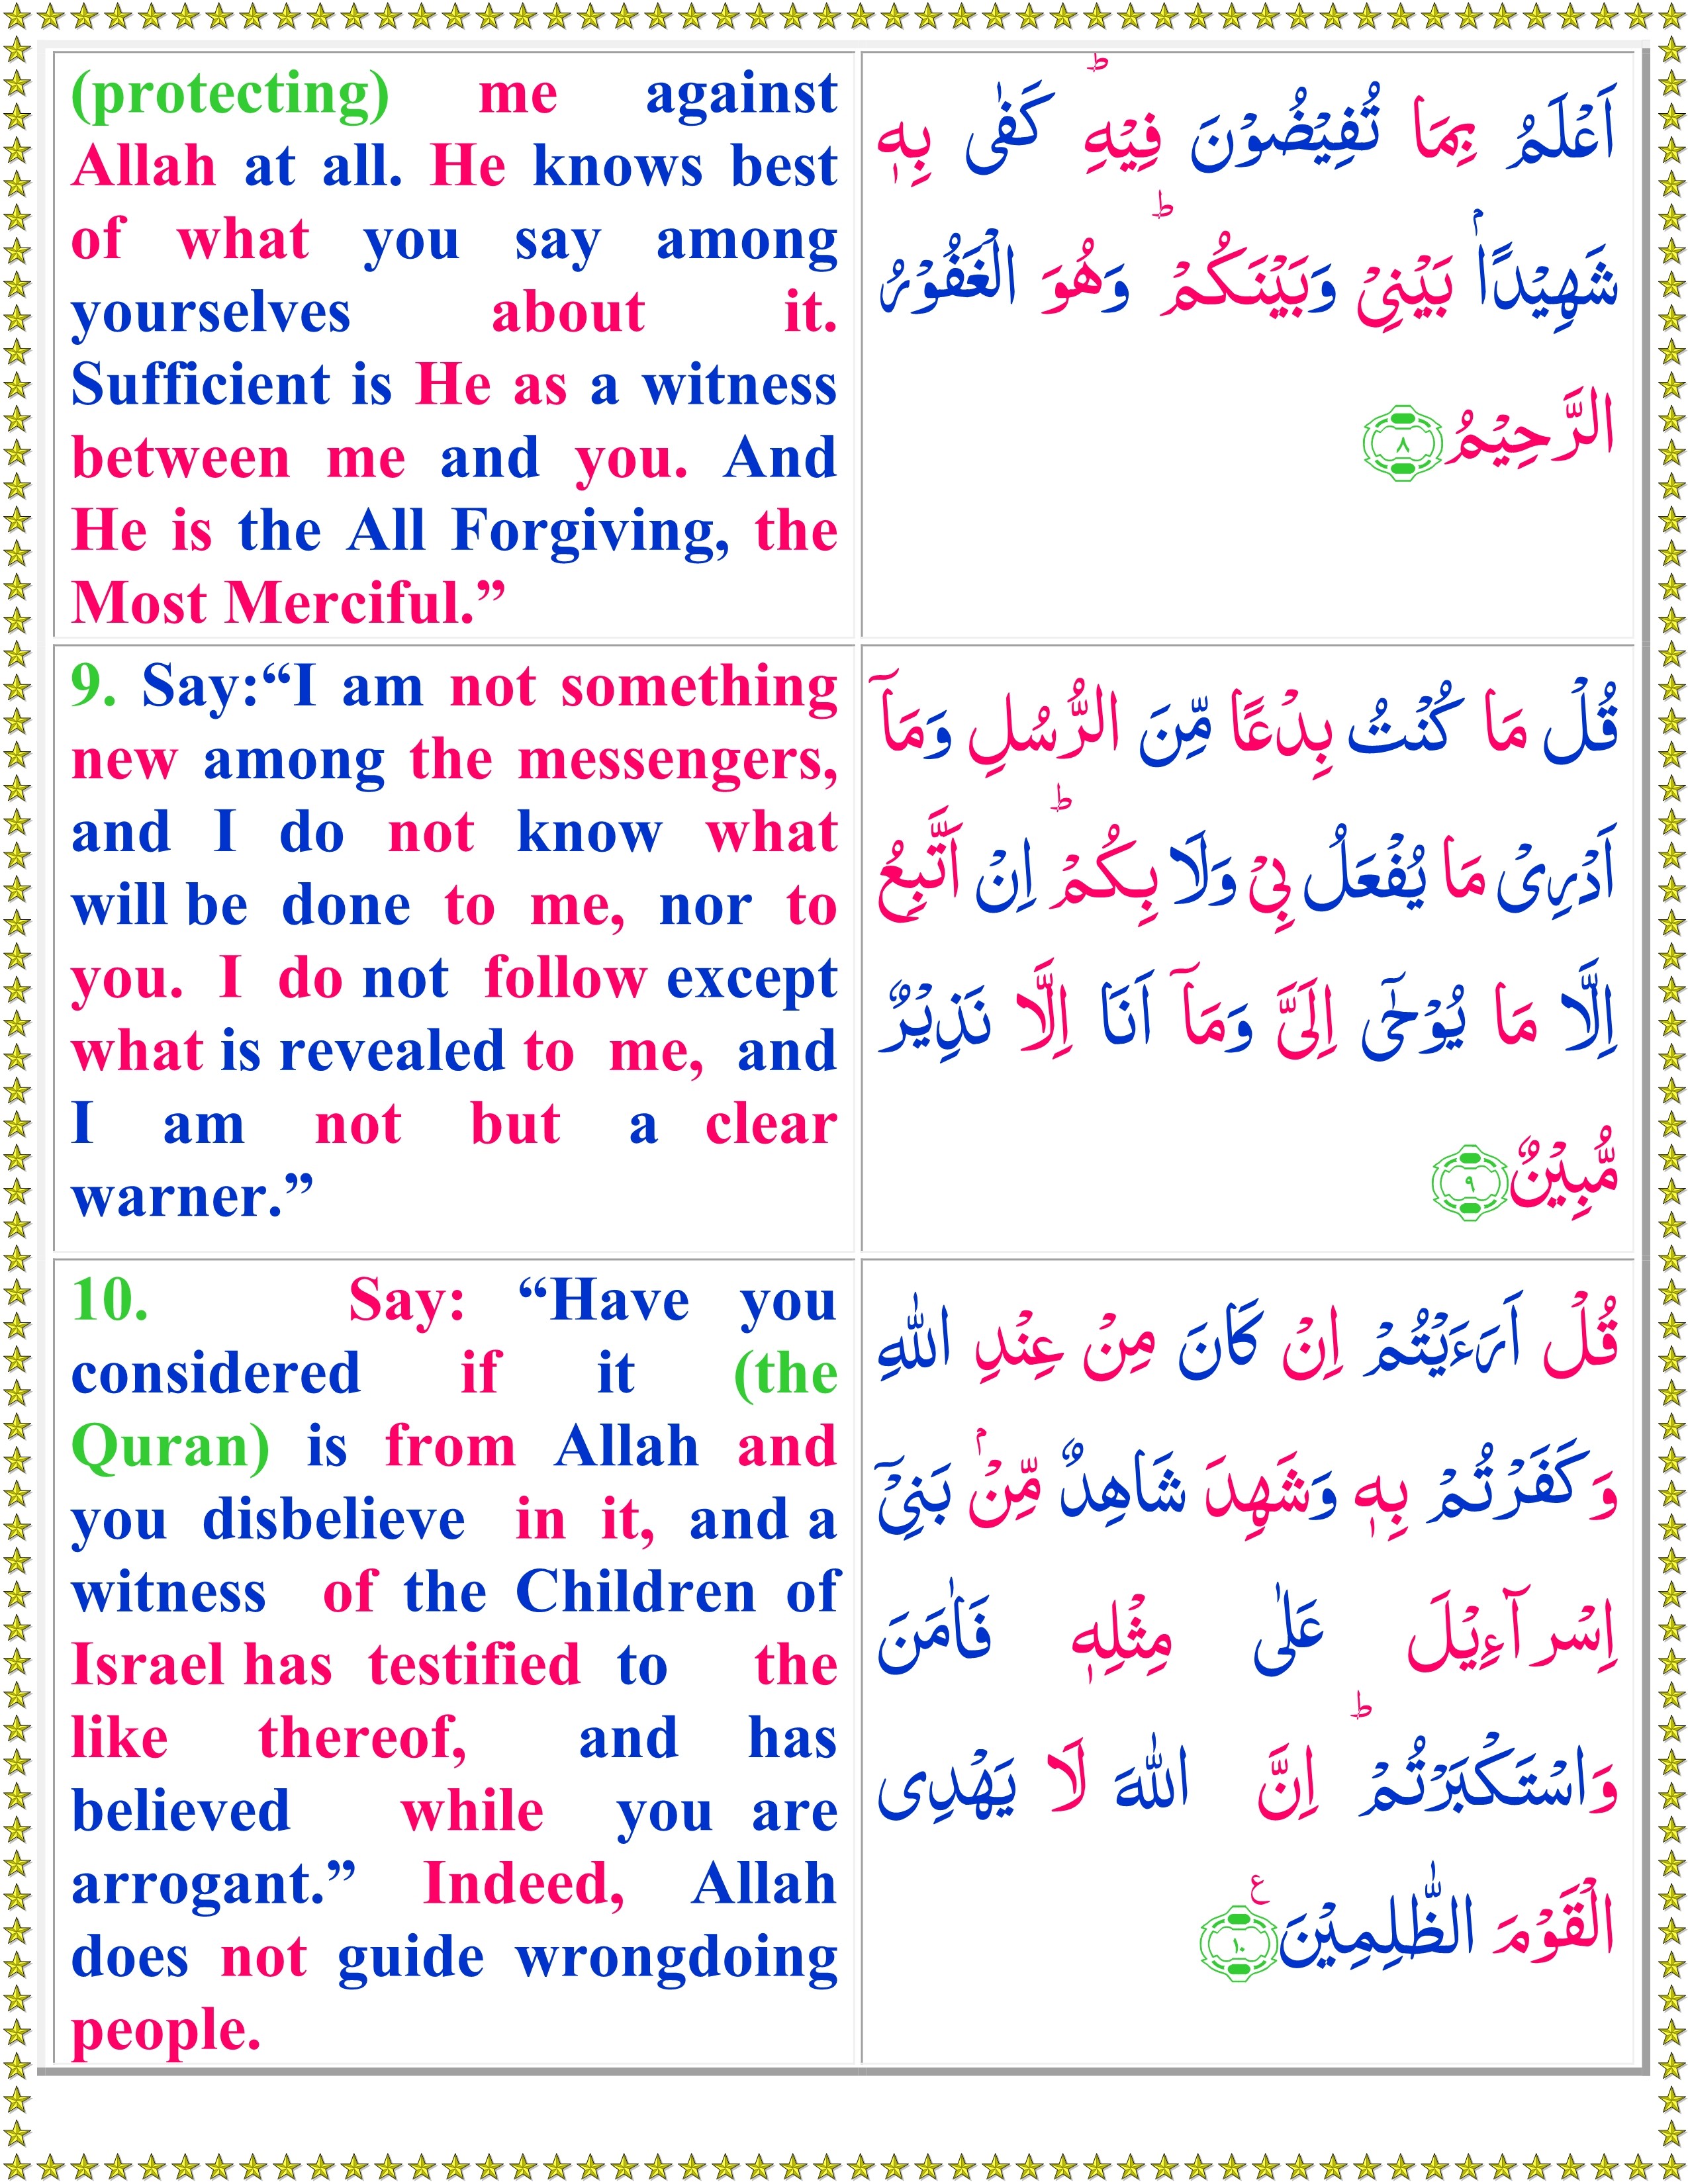 (protecting) me against
Allah at all. He knows best
of what you say among
yourselves about it.
Sufficient is He as a witness
between me and you. And
He is the All Forgiving, the
Most Merciful.”
اَعْلَمُ بِمَا تُفِيْضُوْنَ فِيْهِ ؕ كَفٰى بِهٖ
شَهِيْدًاۢ بَيْنِىْ وَبَيْنَكُمْ ؕ وَهُوَ الْغَفُوْرُ
الرَّحِيْمُ ﴿۸﴾
9. Say:“I am not something
new among the messengers,
and I do not know what
will be done to me, nor to
you. I do not follow except
what is revealed to me, and
I am not but a clear
warner.”
قُلْ مَا كُنْتُ بِدْعًا مِّنَ الرُّسُلِ وَمَاۤ
اَدْرِىْ مَا يُفْعَلُ بِىْ وَلَا بِكُمْ ؕ اِنْ اَتَّبِعُ
اِلَّا مَا يُوْحٰٓى اِلَىَّ وَمَاۤ اَنَا اِلَّا نَذِيْرٌ
مُّبِيْنٌ ﴿۹﴾
10. Say: “Have you
considered if it (the
Quran) is from Allah and
you disbelieve in it, and a
witness of the Children of
Israel has testified to the
like thereof, and has
believed while you are
arrogant.” Indeed, Allah
does not guide wrongdoing
people.
قُلْ اَرَءَيْتُمْ اِنْ كَانَ مِنْ عِنْدِ اللّٰهِ
وَكَفَرْتُمْ بِهٖ وَشَهِدَ شَاهِدٌ مِّنْۢ بَنِىْۤ
اِسْرآءِيْلَ عَلٰى مِثْلِهٖ فَاٰمَنَ
وَاسْتَكْبَرْتُمْ ؕ اِنَّ اللّٰهَ لَا يَهْدِى
الْقَوْمَ الظّٰلِمِيْنَ ﴿۱۰﴾ ع